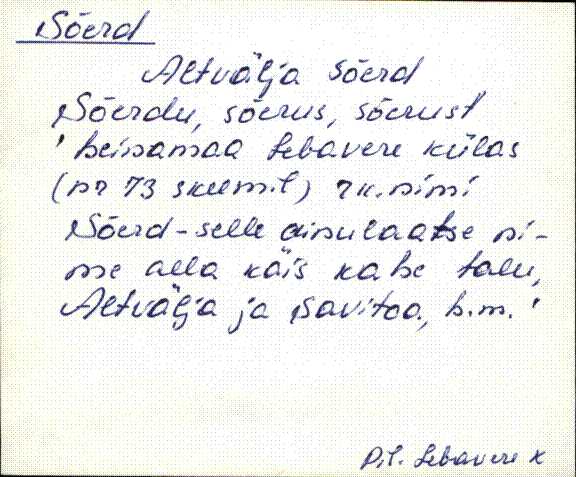 Sõerd
Altvälja Sõerd
Sõerdu, sõerus, sõerust
' heinamaa Lebavere külas
(nr 73 skeemil) rk. nimi
Sõerd - selle ainulaatse ni-
me alla käis kahe talu,
Altvälja ja Savitoa, h.m. '
Pil. Lebavere k